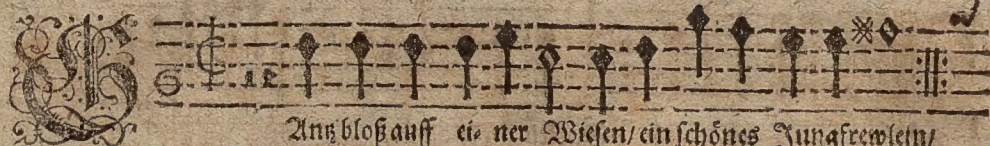 GAntz bloß auff ei⸗ ner Wiesen/ ein schönes Jungfrewlein/